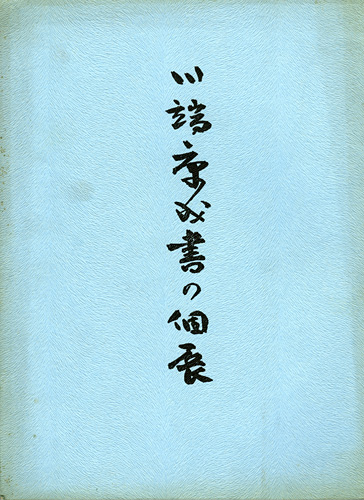 川端康成書の個展